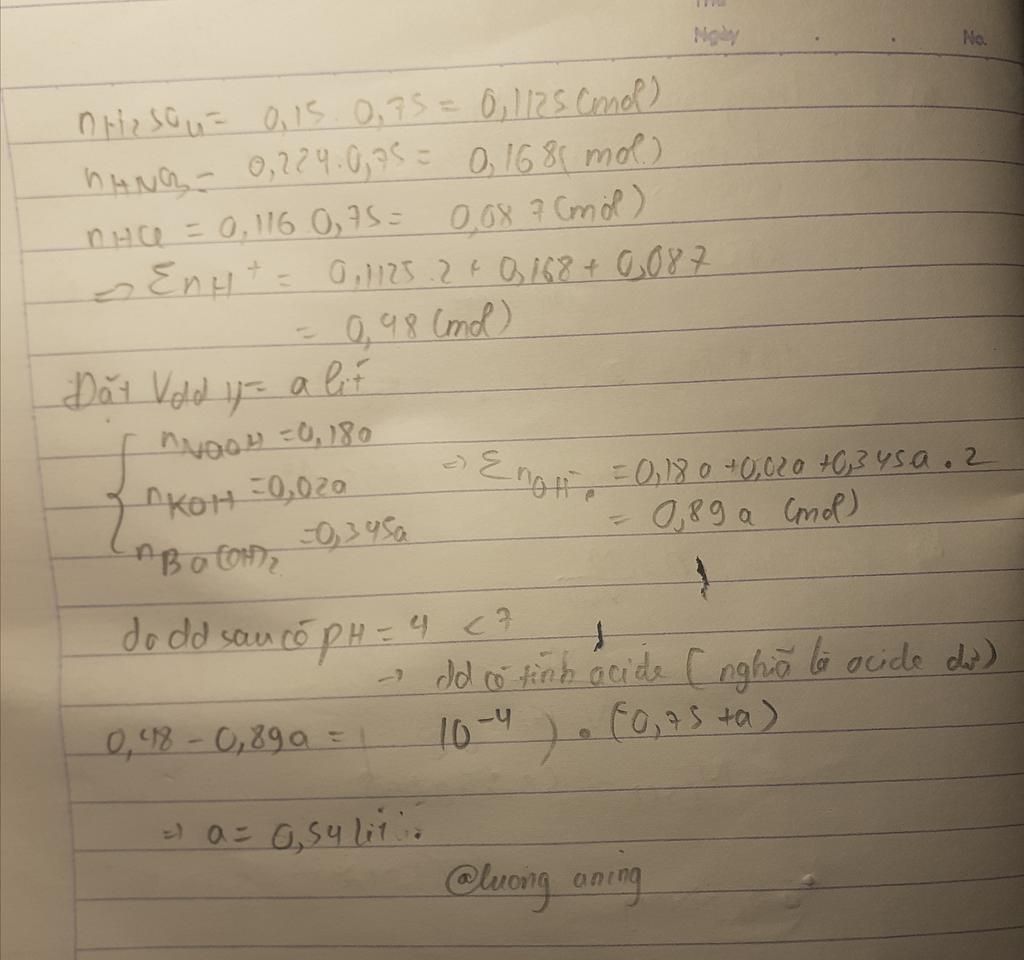 Thứ
Ngày . . No.
nH2SO4 = 0,15 . 0,75 = 0,1125 (mol)
nHNO3 = 0,224 . 0,75 = 0,168 (mol)
nHCl = 0,116 0,75 = 0,087 (mol)
=> ΣnH+ = 0,1125 . 2 + 0,168 + 0,087
= 0,48 (mol)
Đặt Vdd y = a lít
nNaOH = 0,18a
nKOH = 0,02a => ΣnOH- = 0,18a + 0,02a + 0,345a . 2
nBa(OH)2 = 0,345a = 0,89a (mol)
do dd sau có pH = 4 < 7
-> dd có tính acide (nghĩa là acide dư)
0,48 - 0,89a = 10^-4 ) . (0,75 + a)
=> a = 0,54 lít
@luong aning